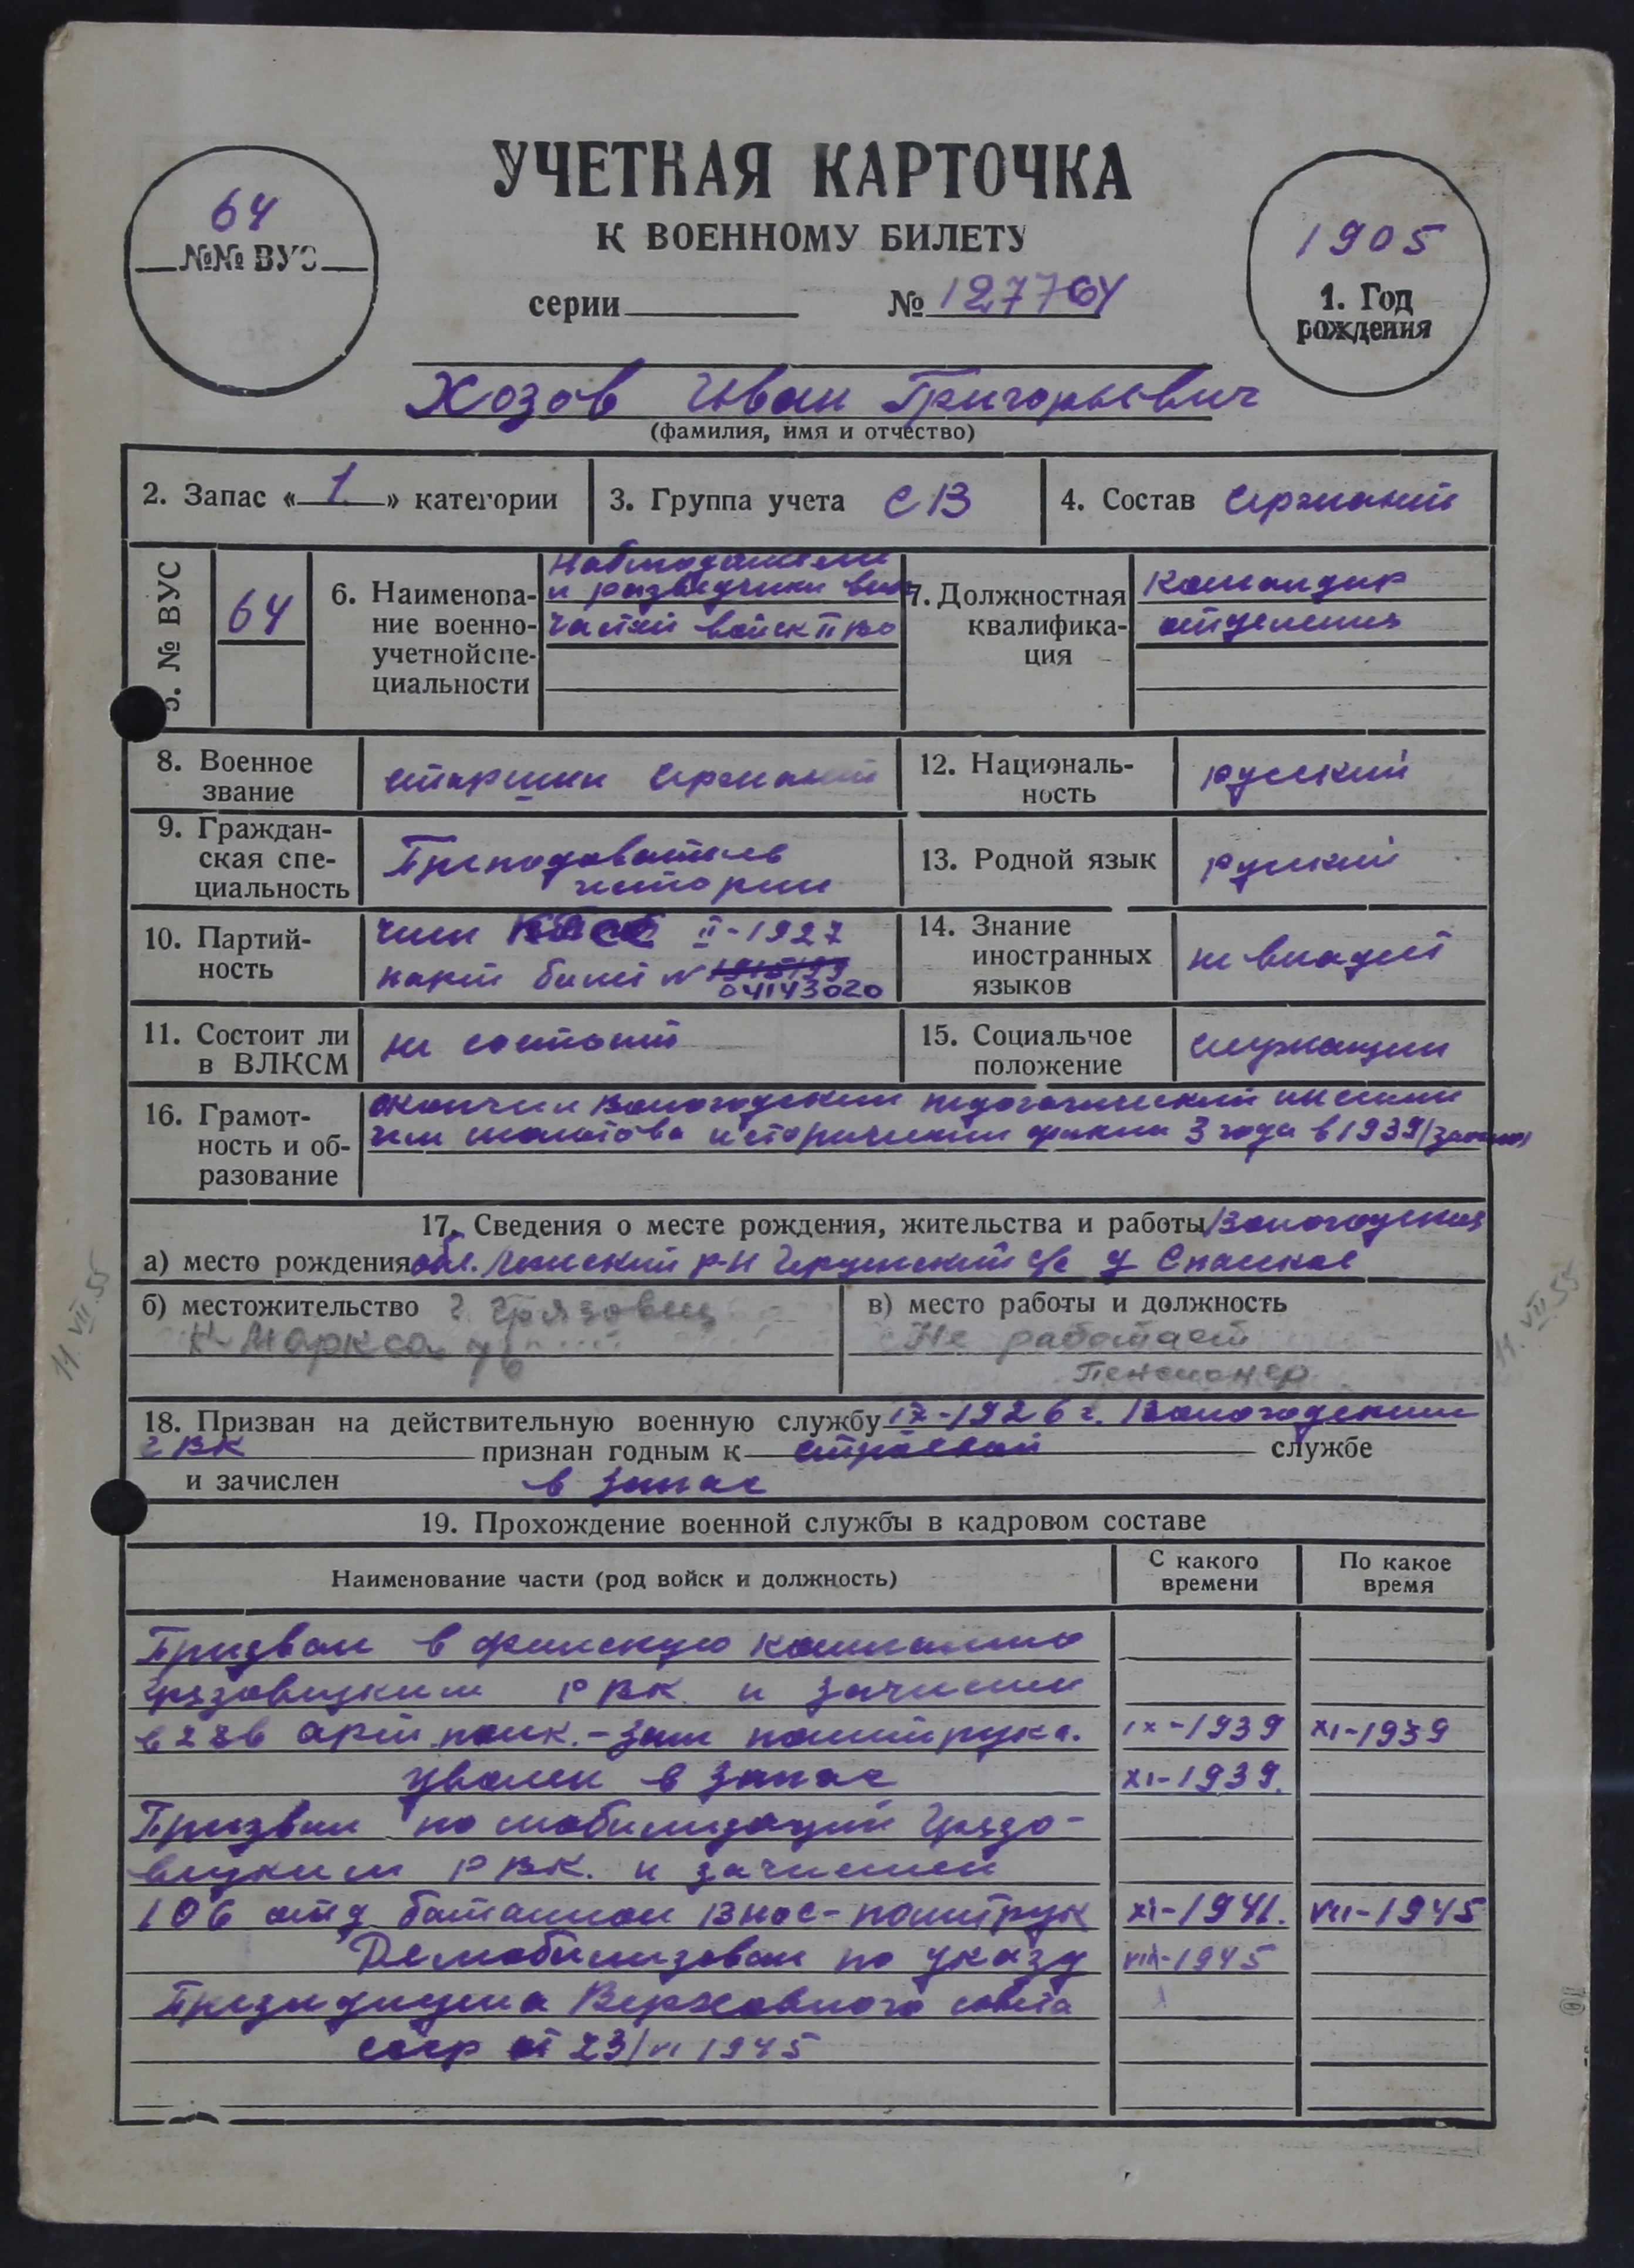 УЧЕТНАЯ КАРТОЧКА
К ВОЕННОМУ БИЛЕТУ
серии № 127764
64
№№ ВУС
1905
1. Год
рождения
Хозов Иван Григорьевич
(фамилия, имя и отчество)
2. Запас « 1 » категории
3. Группа учета СВ
4. Состав сержант
5. № ВУС
64
6. Наименова-
ние военно-
учетной спе-
циальности
Наблюдатели
и разведчики
частей войск ПВО
7. Должностная
квалифика-
ция
Командир
отделения
8. Военное
звание
старший сержант
12. Националь-
ность
русский
9. Граждан-
ская спе-
циальность
Преподаватель
истории
13. Родной язык
русский
10. Партий-
ность
член КПСС II-1927
парт билет №
04143020
14. Знание
иностранных
языков
не владеет
11. Состоит ли
в ВЛКСМ
не состоит
15. Социальное
положение
служащий
16. Грамот-
ность и об-
разование
окончил Вологодский педагогический инстит
им молотова исторический 3 года в 1939
17. Сведения о месте рождения, жительства и работы Вологодская
а) место рождения обл. р-н с/с д Спасское
б) местожительство г. Грязовец
К-Маркса
в) место работы и должность
Не работает
Пенсионер
11.VII.55
11.VII.55
18. Призван на действительную военную службу IX-1926 г. Вологодским
ГВК признан годным к строевой службе
и зачислен в запас
19. Прохождение военной службы в кадровом составе
Наименование части (род войск и должность)
С какого
времени
По какое
время
Призван в финскую кампанию
Грязовецким РВК. и зачислен
в арт. полк. - зам политрука. IX-1939 XI-1939
уволен в запас XI-1939.
Призван по мобилизации Грязо-
вецким РВК. и зачислен
106 отд батальон ВНОС - политрук XI-1941. VII-1945
Демобилизован по указу VIII-1945
Президиума Верховного совета
ссср от 23/VI 1945